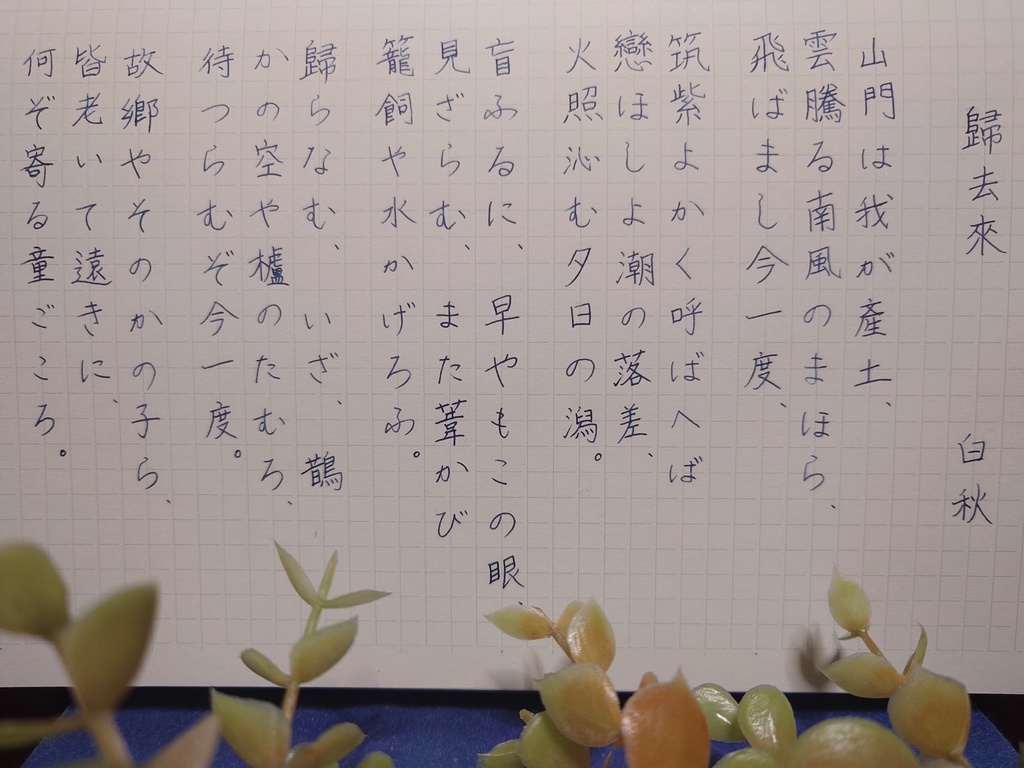 歸去來
白秋
山門は我が產土、
雲騰る南風のまほら、
飛ばまし今一度、
筑紫よかく呼ばへば
戀ほしよ潮の落差、
火照沁む夕日の潟。
盲ふるに、早やもこの眼、
見ざらむ、また葦かび
籠飼や水かげろふ。
歸らなむ、いざ、鵲
かの空や櫨のたむろ、
待つらむぞ今一度。
故鄉やそのかの子ら、
皆老いて遠きに、
何ぞ寄る童ごころ。